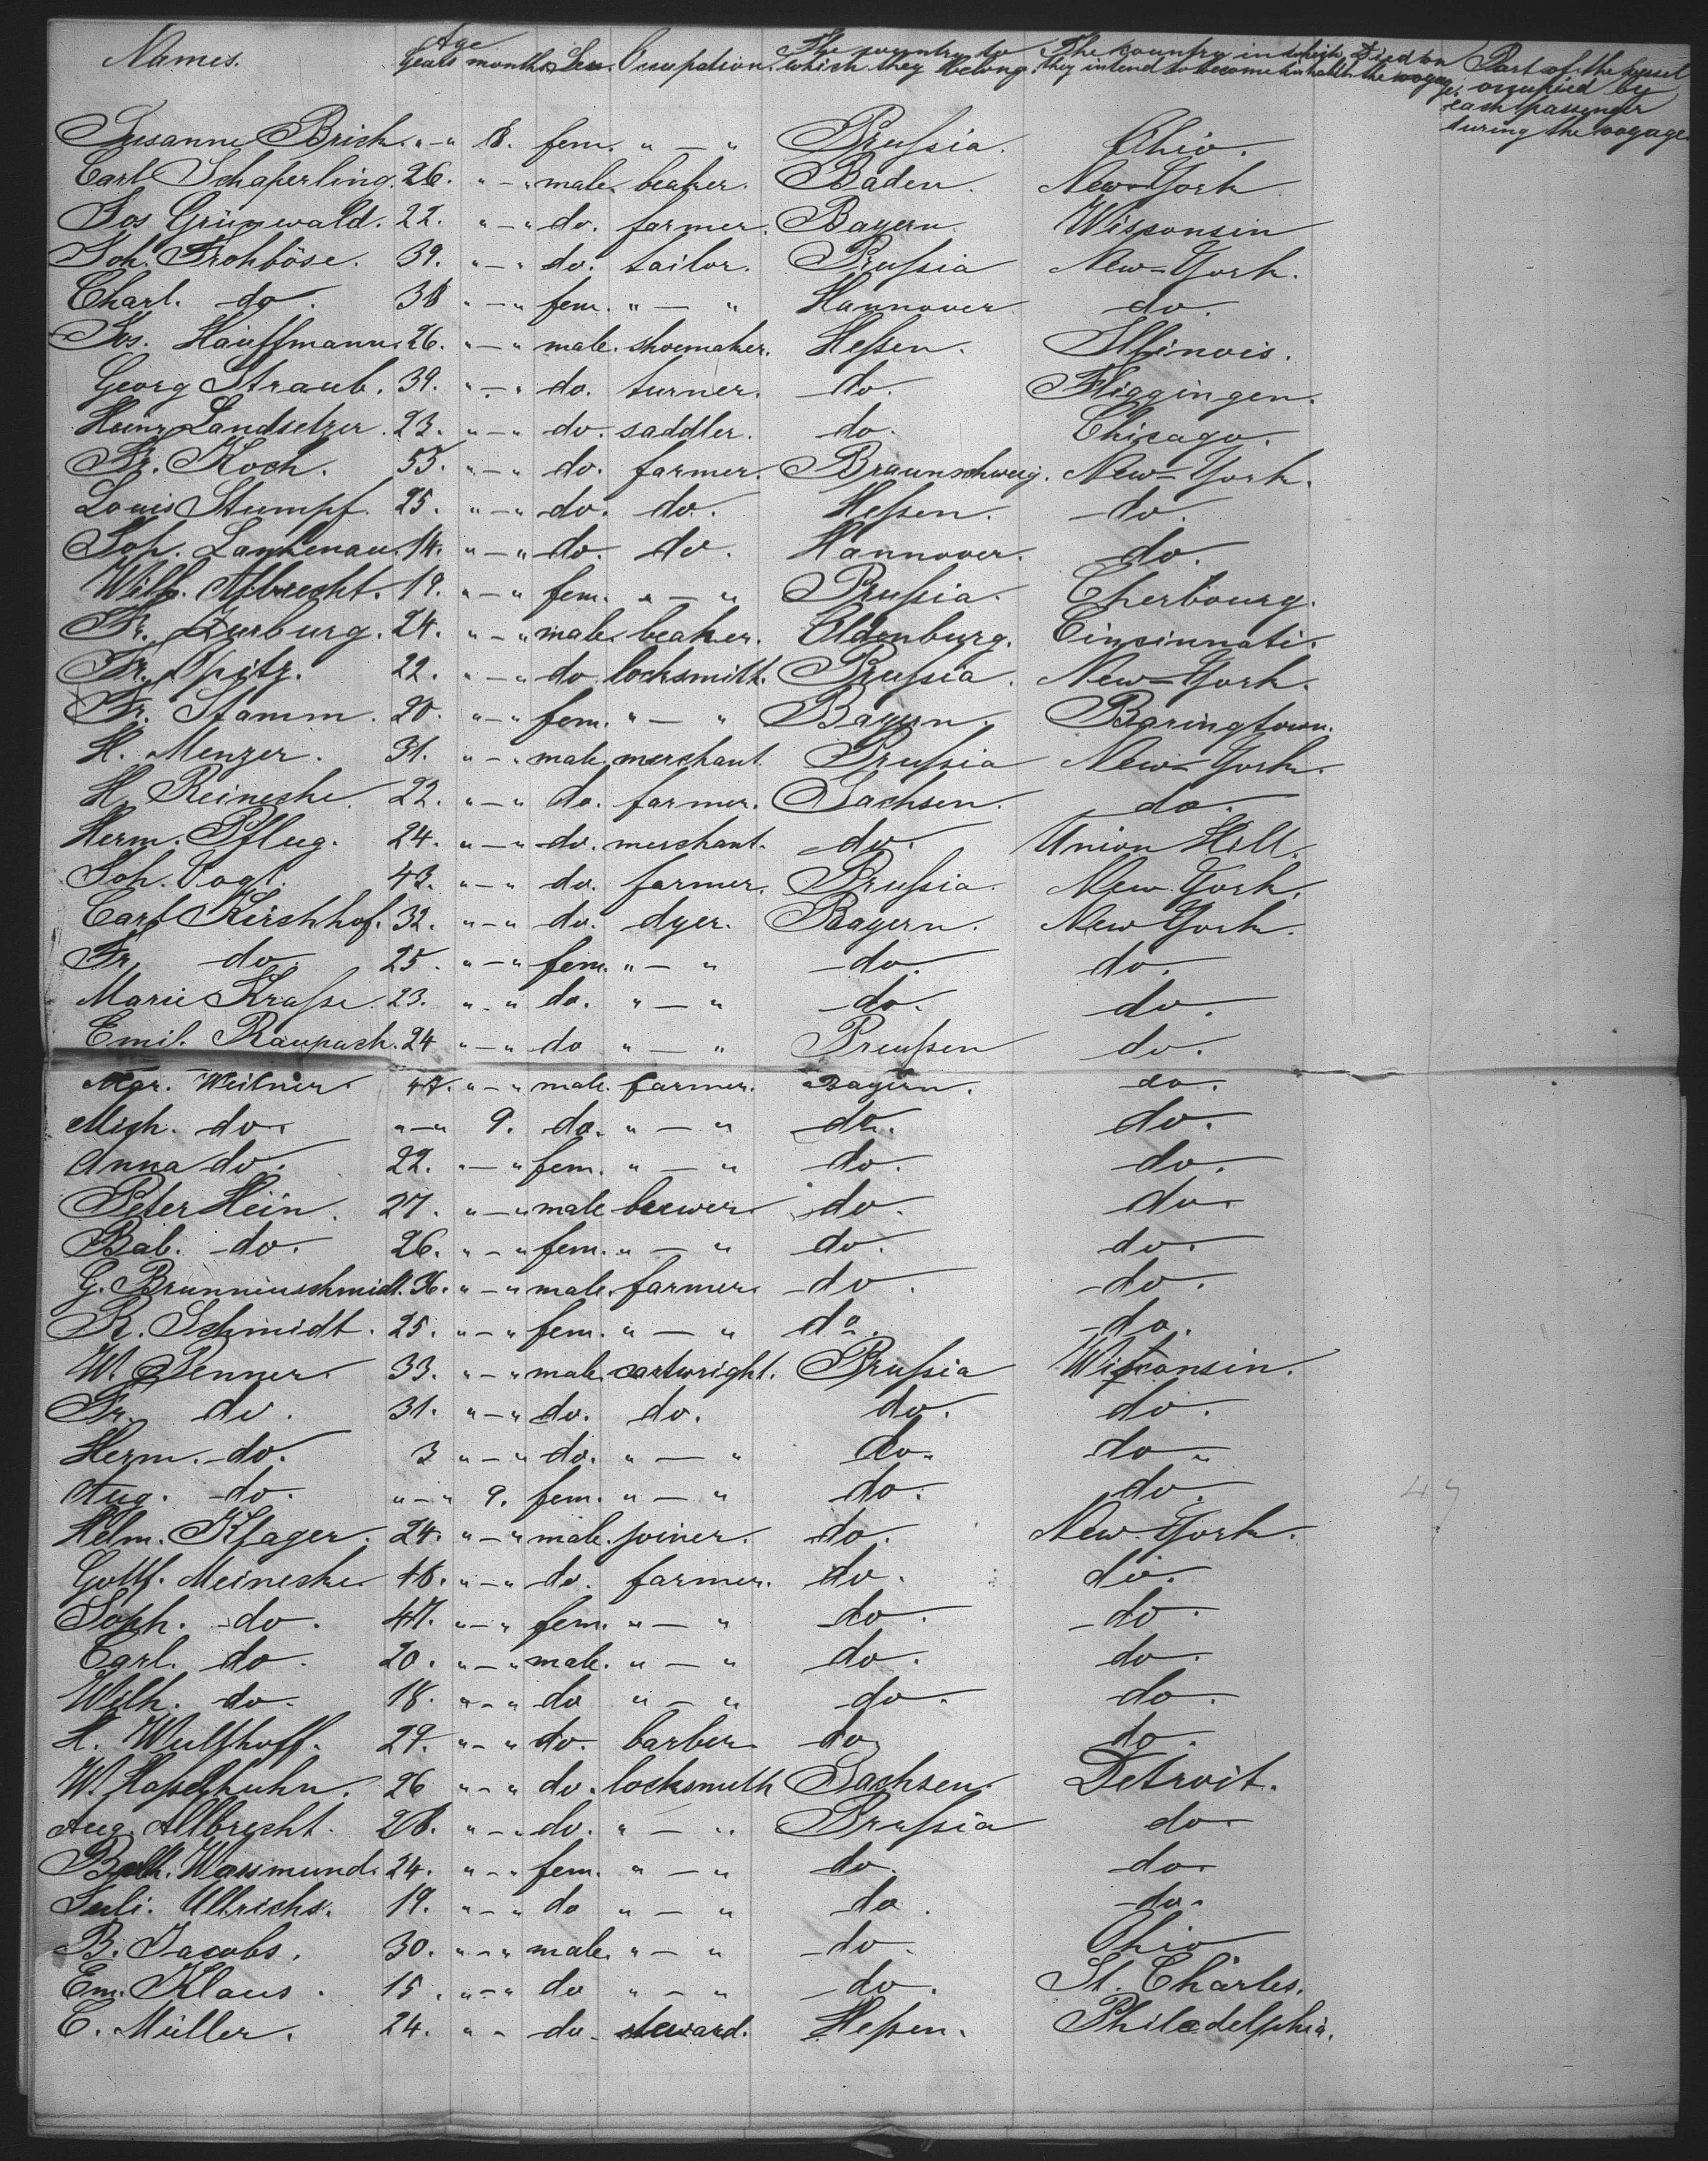 Names. Age Years months Sex. Occupation. The country to which they belong. The country in which they intend to become inhabit. Died on the voyage. Part of the vessel occupied by each passenger during the voyage.
Susanne Brich. " — " 8. fem. " — " Prußia. Ohio.
Carl Schaperling. 26. " — " male. beaker. Baden. New-York.
Jos Grünwald. 22. " — " do. farmer. Bayern. Wisconsin
Joh. Frohböse. 39. " — " do. tailor. Prußia New-York.
Charl. do. 38 " — " fem. " — " Hannover do.
Jos. Hauffmann. 26. " — " male. shoemaker. Heßen. Illinois.
Georg Straub. 39. " — " do. turner. do. Fliggingen.
Heinr. Landsetzer. 23. " — " do. saddler. do. Chicago.
Fr. Koch. 55. " — " do. farmer. Braunschweig. New-York.
Louis Stumpf. 25. " — " do. do. Heßen. do.
Joh. Lankenau. 14. " — " do. do. Hannover. do.
Wilh. Albrecht. 19. " — " fem. " — " Prußia. Cherbourg.
Fr. Zurburg. 24. " — " male. beaker. Oldenburg. Cincinnati.
Fr. Opitz. 22. " — " do. locksmith. Prußia. New-York.
Fr. Stamm. 20. " — " fem. " — " Bayern. Baringtown.
H. Menzer. 31. " — " male. merchant. Prußia New-York.
H. Reinecke. 22. " — " do. farmer. Sachsen. do.
Herm. Pflug. 24. " — " do. merchant. do. Union Hill.
Joh. Vogt. 43. " — " do. farmer. Prußia. New York.
Carl Kirchhof. 32. " — " do. dyer. Bayern. New York.
Fr. do. 25. " — " fem. " — " do. do.
Marie Kraße. 23. " — " do. " — " do. do.
Emil. Raupach. 24 " — " do " — " Preußen do.
Mgr. Weitner 47. " — " male. farmer. Bayern. do.
Mich. do. " — " 9. do. " — " do. do.
Anna do. 22. " — " fem. " — " do. do.
Peter Hein. 27. " — " male brewer do. do.
Bab. do. 26. " — " fem. " — " do. do.
G. Brunnenschmidt. 36. " — " male. farmer. do. do.
R. Schmidt. 25. " — " fem. " — " do. do.
W. Penner. 33. " — " male. cartwright. Prußia Wisconsin.
Fr. do. 31. " — " do. do. do. do.
Herm. do. 3 " — " do. " — " do. do.
Aug. do. " — " 9. fem. " — " do. do.
Helm. Klager. 24. " — " male. joiner. do. New-York.
Gottf. Meinecke 46. " — " do. farmer. do. do.
Soph. do. 47. " — " fem. " — " do. do.
Carl. do. 20. " — " male. " — " do. do.
Wilh. do. 18. " — " do " — " do. do.
H. Wulfhoff. 27. " — " do. barber do. do.
W. Haßelhuhn. 26 " — " do. locksmith Sachsen. Detroit.
Aug. Albrecht. 28. " — " do. " — " Prußia do.
Wassmund. 24. " — " fem. " — " do. do.
Juli. Ullrichs. 19. " — " do " — " do. do.
B. Jacobs. 30. " — " male. " — " do. Ohio
Em. Klaus. 15. " — " do " — " do. St. Charles.
C. Müller. 24. " — do. steward. Heßen. Philadelphia.